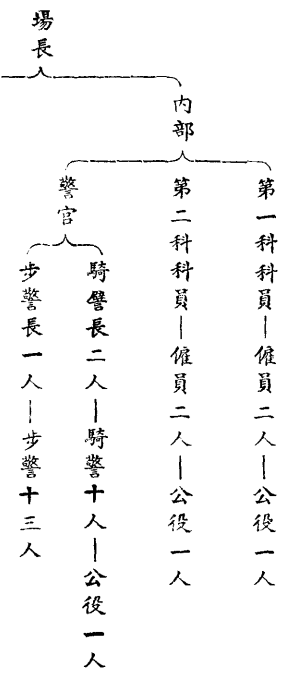 場長
內部
第一科科員｜僱員二人｜公役一人
第二科科員｜僱員二人｜公役一人
警官
騎警長二人｜騎警十人｜公役一人
步警長一人｜步警十三人